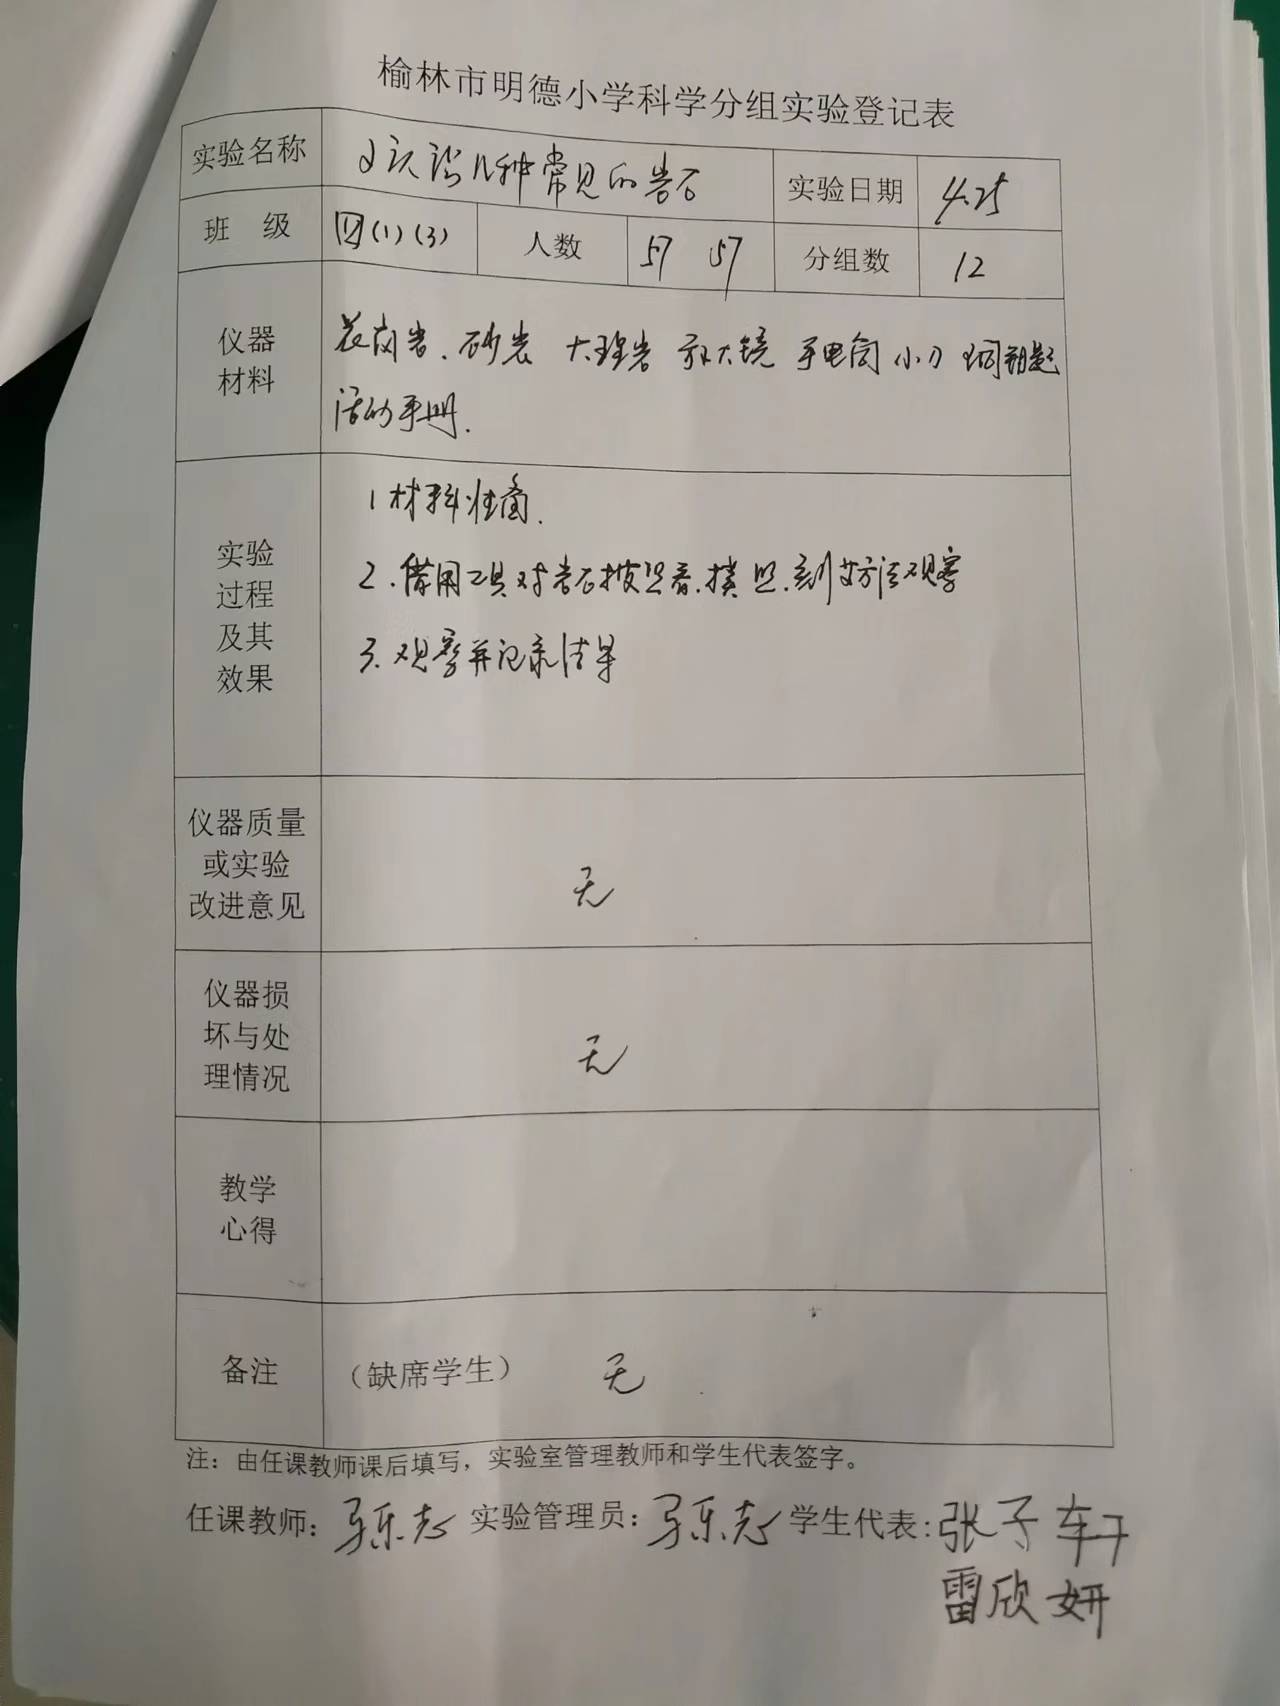 榆林市明德小学科学分组实验登记表
实验名称 认识几种常见的岩石 实验日期 4.25
班 级 四(1)(3) 人数 57 57 分组数 12
仪器材料 花岗岩、砂岩 大理岩 放大镜 手电筒 小刀 铜钥匙
活动手册.
实验过程及其效果 1 材料准备.
2. 借用工具对岩石按照看.摸.照.刻等方法观察
3. 观察并记录结果
仪器质量或实验改进意见 无
仪器损坏与处理情况 无
教学心得
备注 （缺席学生） 无
注：由任课教师课后填写，实验室管理教师和学生代表签字。
任课教师: 马乐志 实验管理员: 马乐志 学生代表: 张子轩
雷欣妍